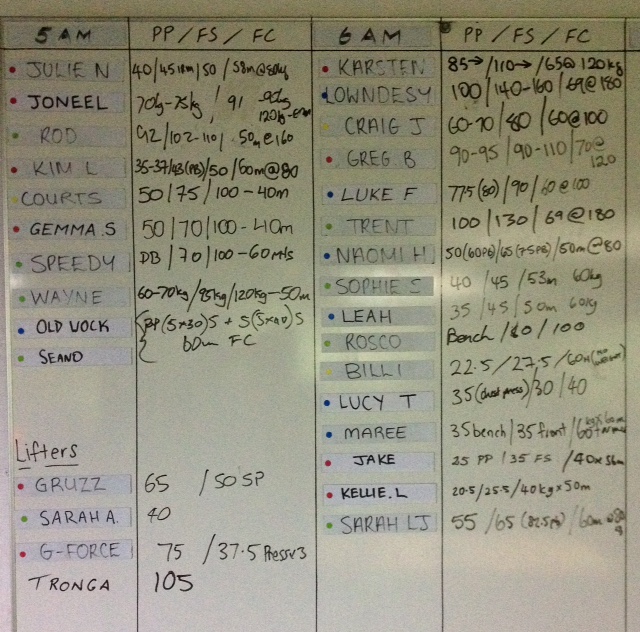 5 AM PP / FS / FC
JULIE N 40/45 /50 /58m@80kg
JONEEL 70kg-75kg / 91 90kg
ROD 102-110 50m@160
KIM L 35-37/43(PB)/50/60m@80
COURTS 50/75/100-40m
GEMMA.S 50/70/100-40m
SPEEDY DB/70/100-60mts
WAYNE 60-70kg/95kg/120kg-50m
OLD UOCK BP(5x30)5 + 5(5x40)5
SEAND 60m FC
Lifters
GRUZZ 65 /50 SP
SARAH A. 40
G-FORCE 75 /37.5 Press x3
TRONGA 105
6 AM PP / FS / FC
KARSTEN 85→/110→/65@120kg
LOWNDESY 100/140-160/69@180
CRAIG J 60-70/80/60@100
GREG B 90-95/90-110/70@120
LUKE F 77.5(80)/90/60@100
TRENT 100/130/69@180
NAOMI H 50(60PB)/65(75PB)/50m@80
SOPHIE S 40/45/53m 60kg
LEAH 35/45/50m 60kg
ROSCO Bench/80/100
BILLI 22.5/27.5/60m
LUCY T 35(chest press)/30/40
MAREE 35bench/35front/
JAKE 25 PP/35 FS/40x56m
KELLIE.L 20.5/25.5/40kgx50m
SARAH LJ 55/65(82.5PB)/60m@